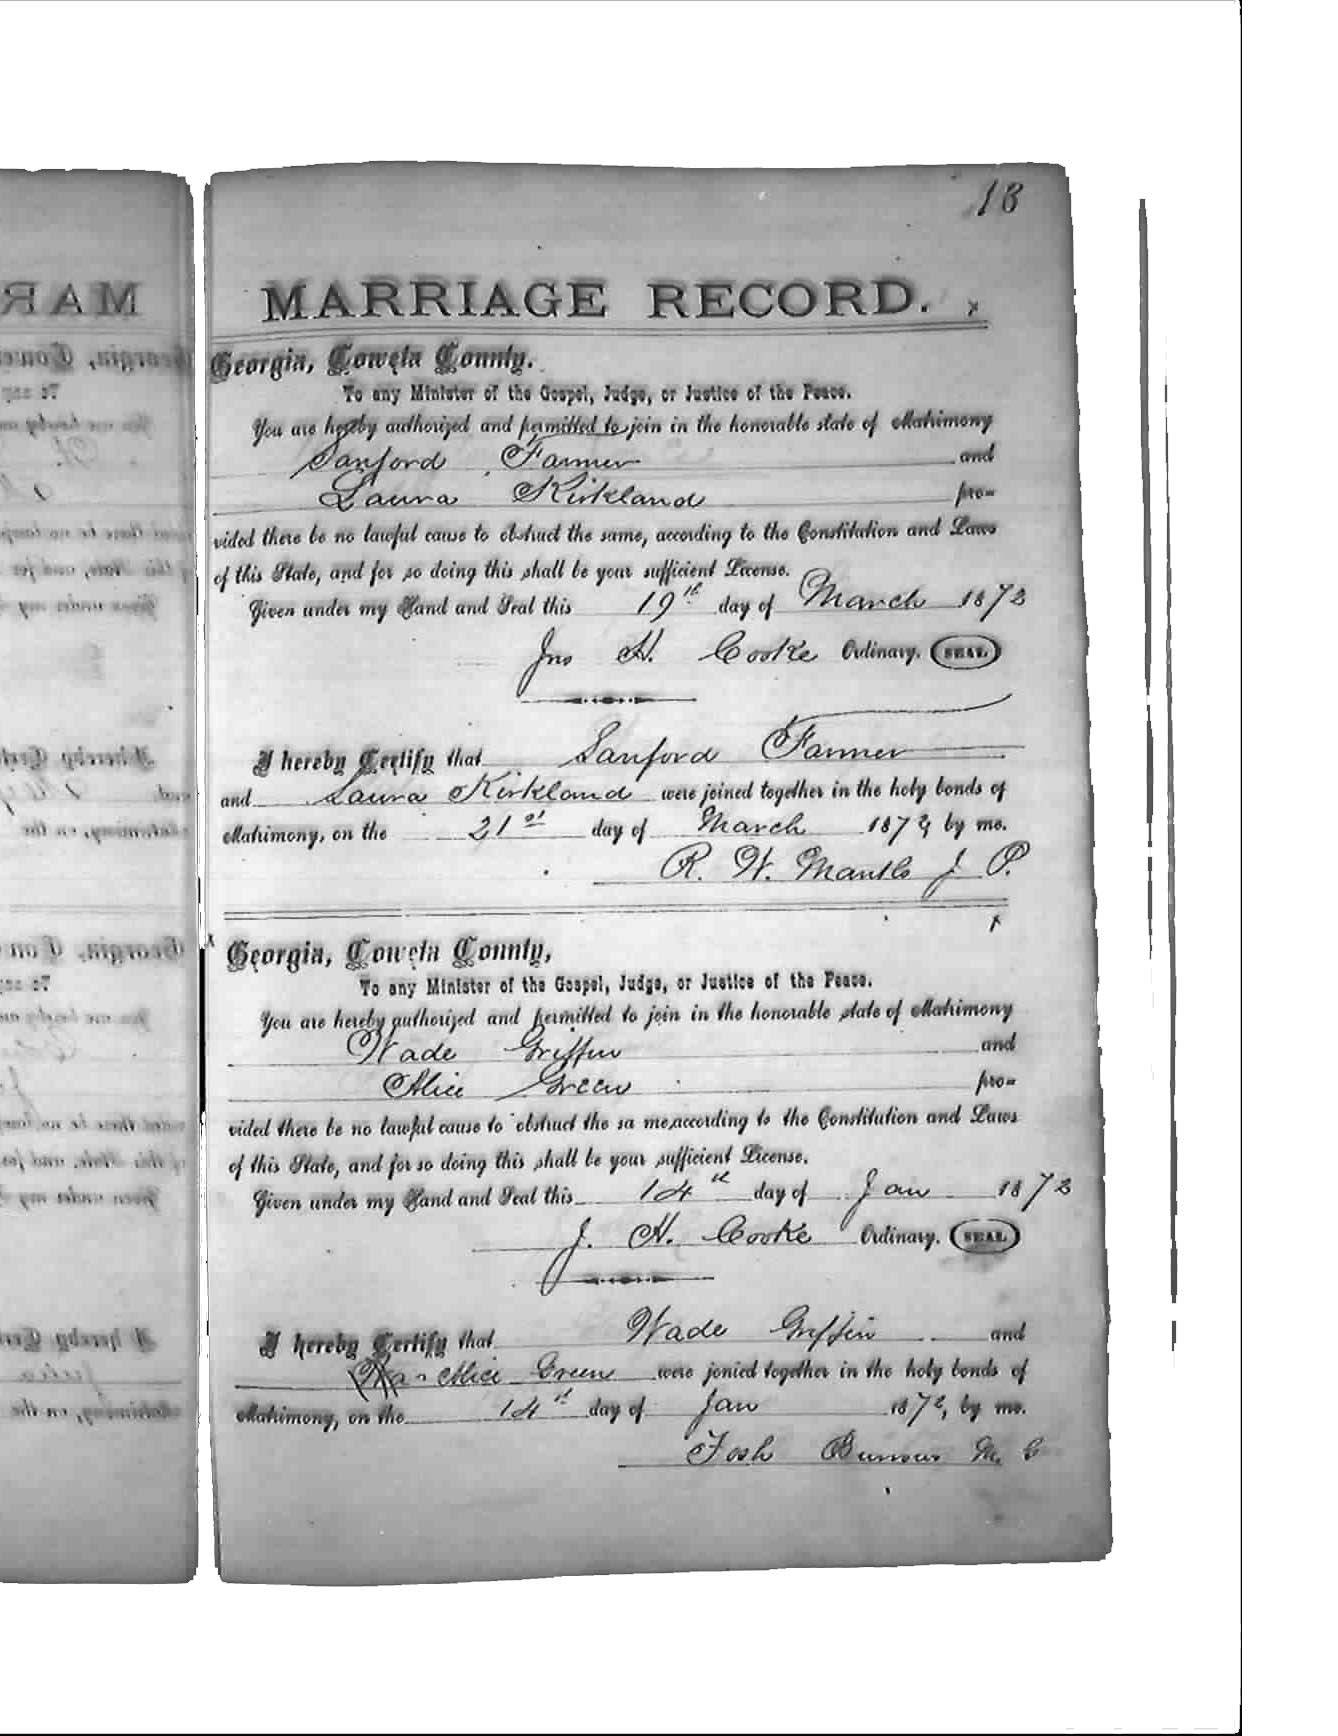 18
MARRIAGE RECORD. x
Georgia, Coweta County.
To any Minister of the Gospel, Judge, or Justice of the Peace.
You are hereby authorized and permitted to join in the honorable state of Matrimony
Sanford Farmer and
Laura Kirkland pro-
vided there be no lawful cause to obstruct the same, according to the Constitution and Laws
of this State, and for so doing this shall be your sufficient License.
Given under my Hand and Seal this 19th day of March 1872
Jno H. Cooke Ordinary. SEAL
I hereby Certify that Sanford Farmer
and Laura Kirkland were joined together in the holy bonds of
Matrimony, on the 21st day of March 1872, by me.
R. W. J. P.
x
x Georgia, Coweta County,
To any Minister of the Gospel, Judge, or Justice of the Peace.
You are hereby authorized and permitted to join in the honorable state of Matrimony
Wade Griffin and
Alice Green pro-
vided there be no lawful cause to obstruct the sa me,according to the Constitution and Laws
of this State, and for so doing this shall be your sufficient License.
Given under my Hand and Seal this 14th day of Jan 1872
J. H. Cooke Ordinary. SEAL
I hereby Certify that Wade Griffin and
Alice Green were jonied together in the holy bonds of
Matrimony, on the 14th day of Jan 1872, by me.
Tosh M. G